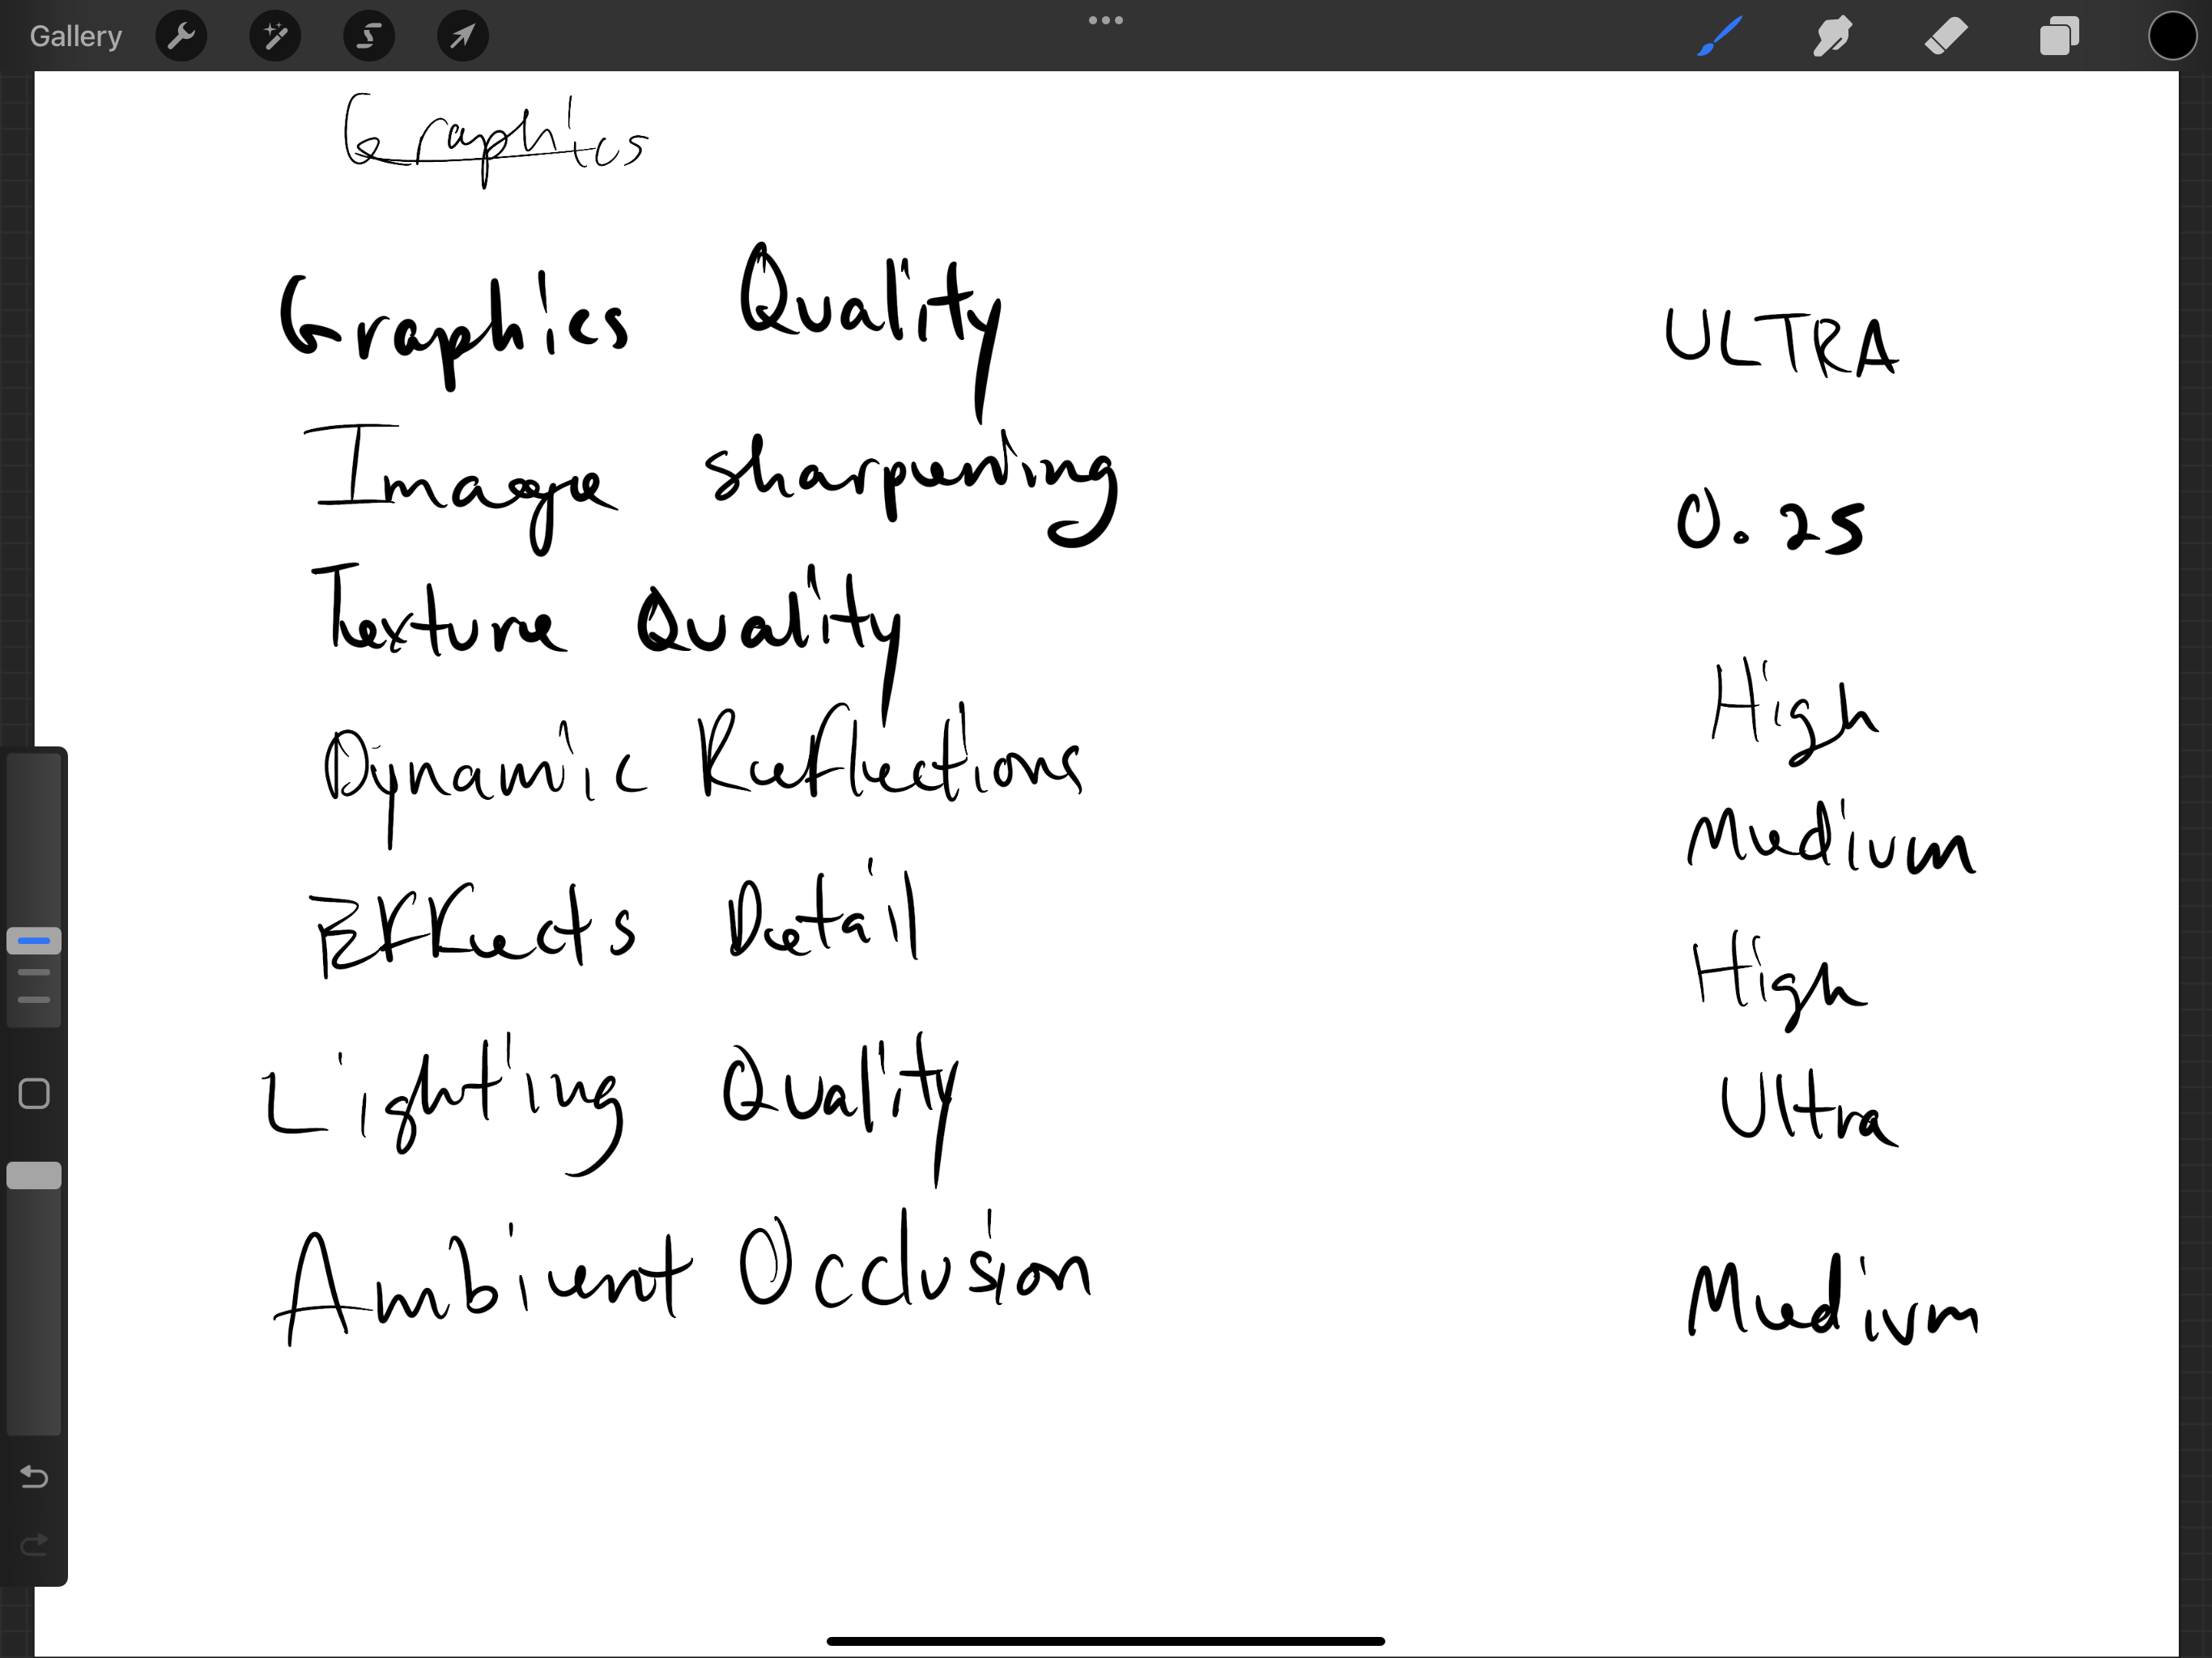 Gallery
Graphics
Graphics Quality ULTRA
Image sharpening 0.25
Texture Quality High
Dynamic Reflections Medium
Effects Detail High
Lighting Quality Ultra
Ambient Occlusion Medium